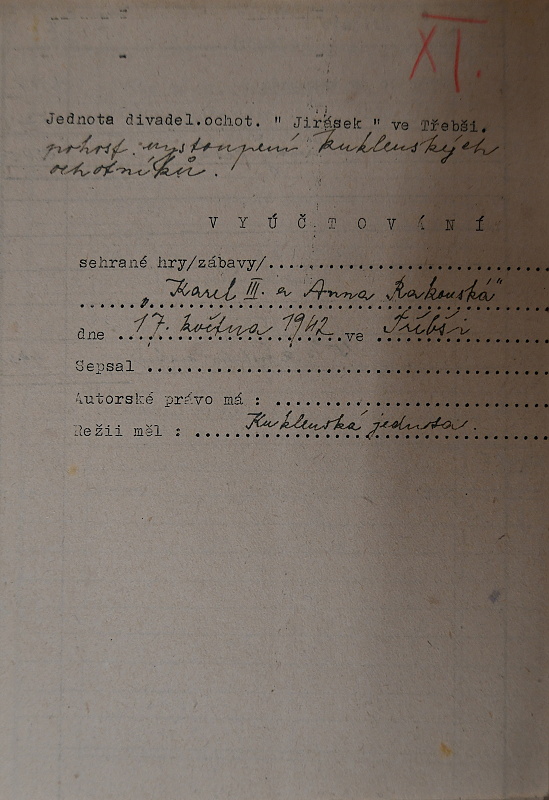 XI.
Jednota divadel.ochot. " Jirásek " ve Třebši.
pohost. vystoupení kuklenských
ochotníků.
VYÚČTOVÁNÍ
sehrané hry/zábavy/..............................
„Karel III. a Anna Rakouská"
dne 17. května 1942 ve Třebši
Sepsal ..............................
Autorské právo má : ..............................
Režii měl : Kuklenská jednota.